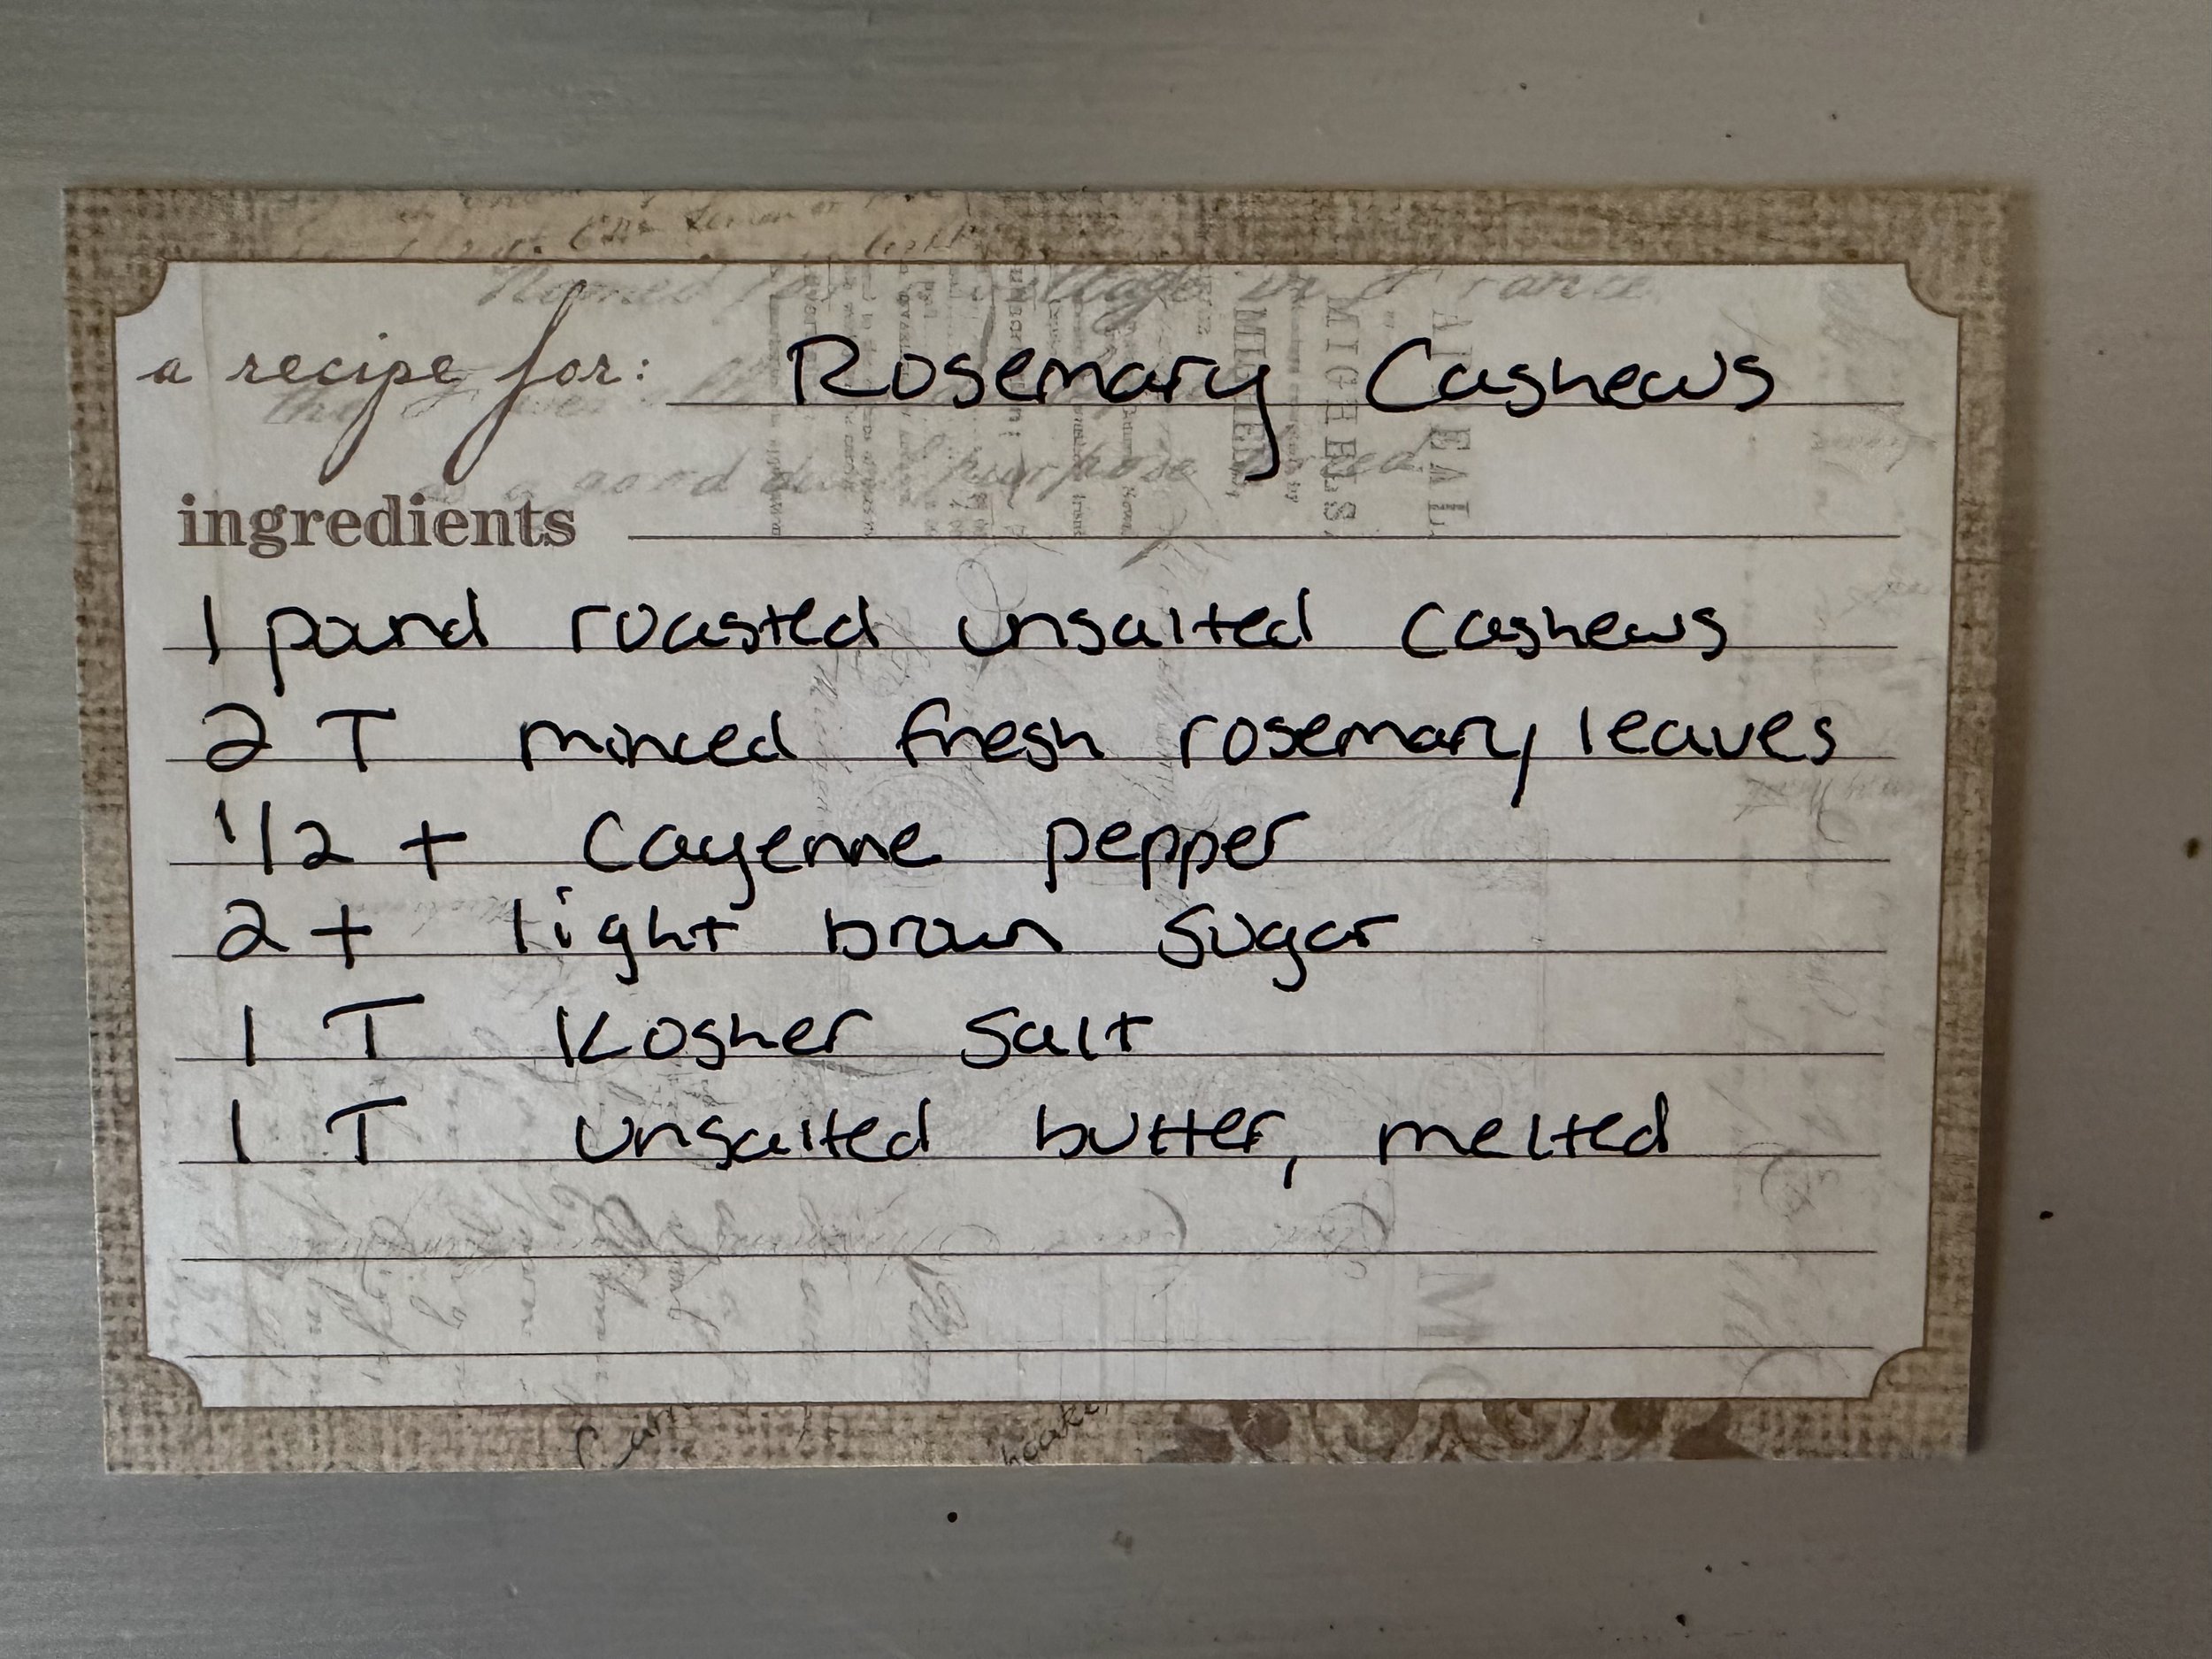 a recipe for: Rosemary Cashews
ingredients
1 pound roasted unsalted cashews
2 T minced fresh rosemary leaves
1/2 t Cayenne pepper
2 t light brown sugar
1 T Kosher salt
1 T unsalted butter, melted